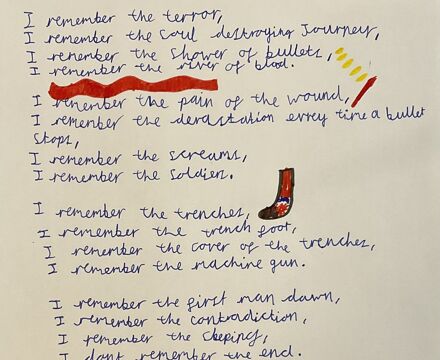 I remember the terror,
I remember the soul destroying Journey,
I remember the shower of bullets,
I remember the river of blood.
I remember the pain of the wound,
I remember the devastation every time a bullet
stops,
I remember the screams,
I remember the soldiers.
I remember the trenches,
I remember the trench foot,
I remember the cover of the trenches,
I remember the machine gun.
I remember the first man down,
I remember the contradiction,
I remember the
I dont remember the end.